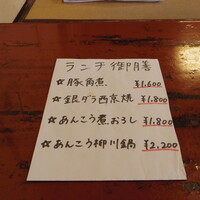 ランチ御膳
☆豚角煮 ¥1,600
☆銀ダラ西京焼 ¥1,800
☆あんこう煮おろし ¥1,800
☆あんこう柳川鍋 ¥2,200